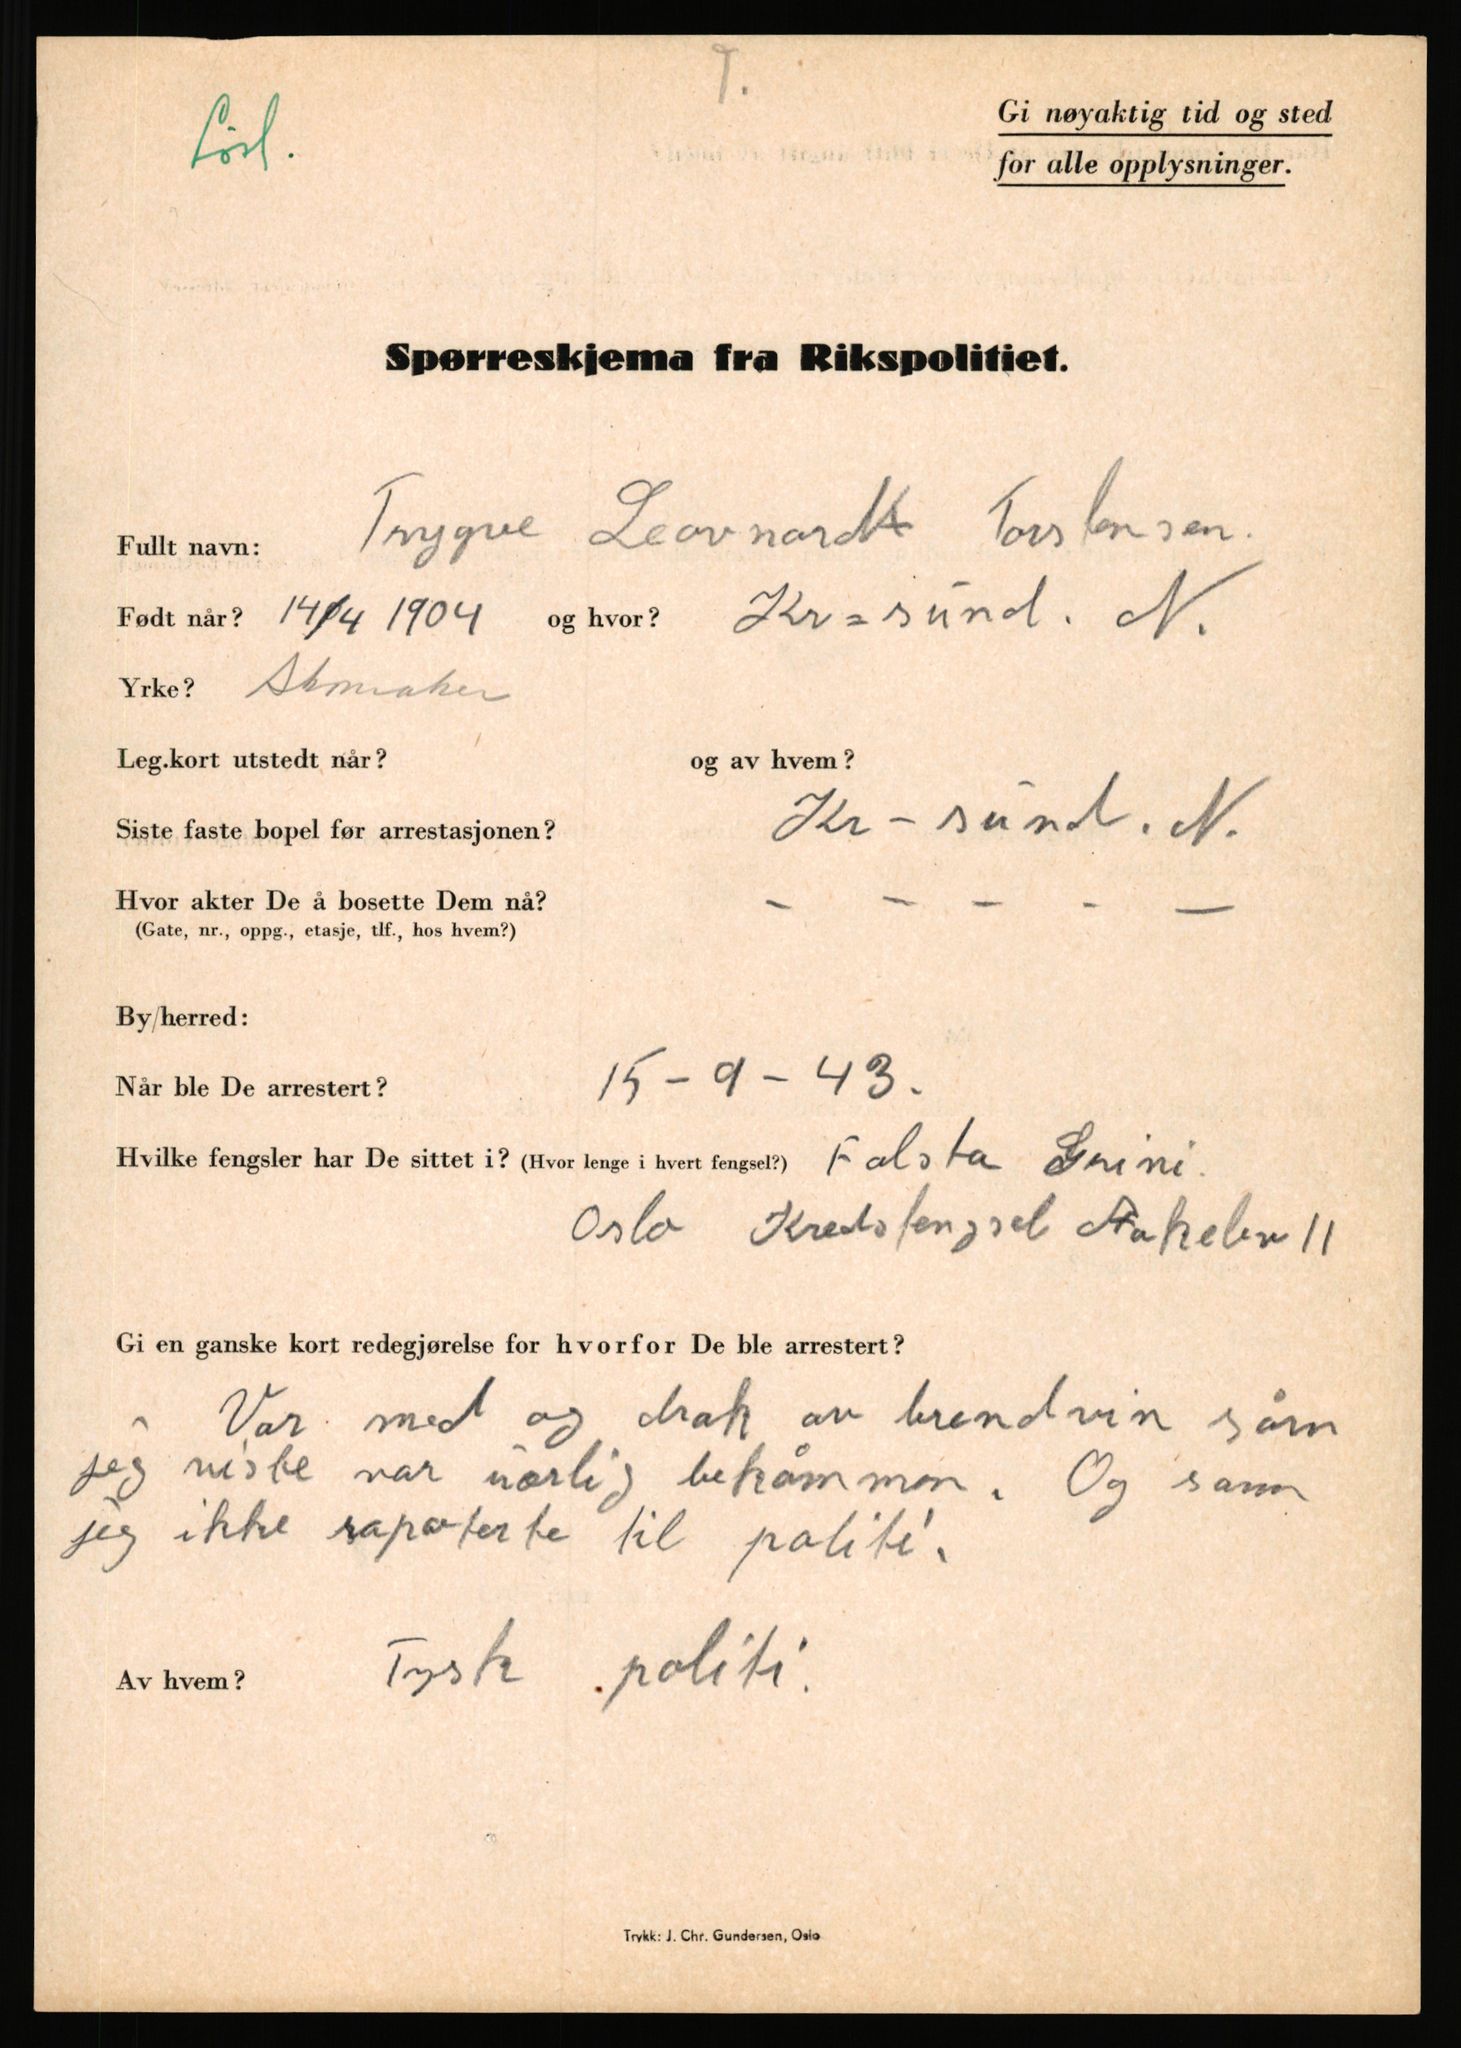 T.
Lösl.
Gi nøyaktig tid og sted
for alle opplysninger.
Spørreskjema fra Rikspolitiet.
Fullt navn: Trygve Leovnardt Torstensen.
Født når? 14/4 1904 og hvor? Kr=sund. N.
Yrke? Skomaker
Leg.kort utstedt når? og av hvem?
Siste faste bopel før arrestasjonen? Kr - sund. N.
Hvor akter De å bosette Dem nå? - - - - -
(Gate, nr., oppg., etasje, tlf., hos hvem?)
By/herred:
Når ble De arrestert? 15-9-43.
Hvilke fengsler har De sittet i? (Hvor lenge i hvert fengsel?) Falsta Grini.
Oslo Kredsfengsel
Gi en ganske kort redegjørelse for hvorfor De ble arrestert?
Var med og drak av brendvin såm
jeg viste var uærlig bekåmmen. Og såm
jeg ikke rapoterte til politi.
Av hvem? Tysk politi.
Trykk: J. Chr. Gundersen, Oslo